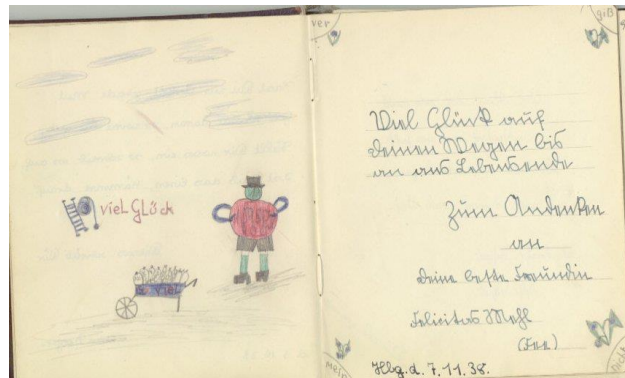 viel GLück
viel
ver
giß
Viel Glück auf
deinen Wegen bis
an ans Lebensende
Zum Andenken
an
deine beste Freundin
Felicitas Mehl
(Fee)
Hbg. d. 7.11.38.
mein
nicht